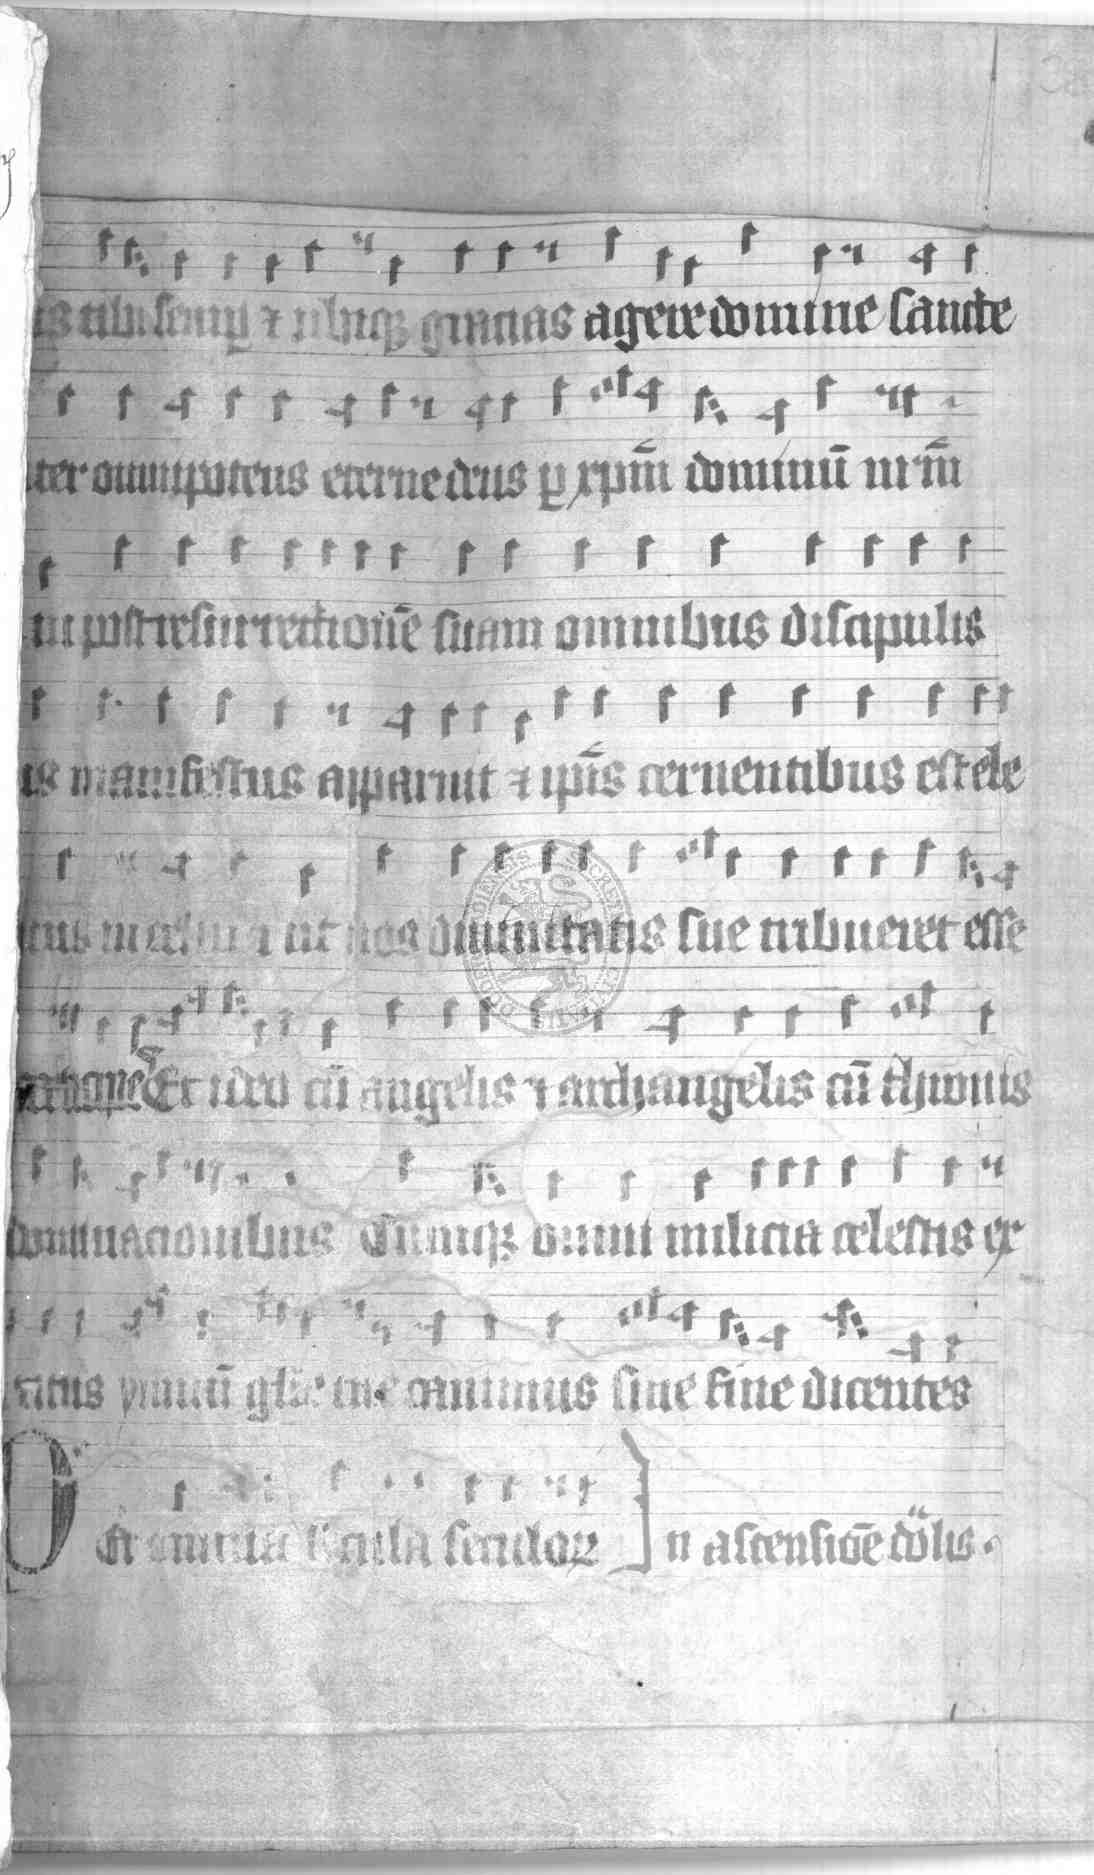 is tibi semꝑ ⁊ vbiqꝫ gracias agere domine sancte
ter omnipotens eterne deus ꝑ xpm̄ dominū nr̄m
ui post resurrectionē suam omnibus discipulis
is manifestus apparuit ⁊ ip̄is cernentibus est ele
tus in celum ut nos diuinitatis sue tribueret esse
Et ideo cū angelis ⁊ archangelis cū thronis
dominacionibus Cumqꝫ omni milicia celestis ex
citus ymnū gl̄ie tue canimus sine fine dicentes
Per omnia secula seculoꝝ In ascensiōe dn̄ilis